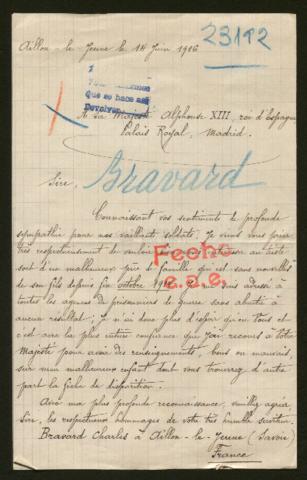 Aillon-le-Jeune le 14 Juin 1916
23192
Que se hace así
Devolver
A sa Majesté Alphonse XIII, roi d'Espagne
Palais Royal, Madrid.
Sire,
Bravard
Connaissant vos sentiments de profonde
sympathie pour nos vaillants soldats, Je viens vous prier
très respectueusement de vouloir bien au triste
sort d'un malheureux père de famille qui est sans nouvelles
de son fils depuis fin octobre adressé à
Fecho
e.e.e.
toutes les agences de prisonniers de guerre sans aboutir à
aucun résultat; je n'ai donc plus d'espoir qu'en vous et
c'est avec la plus intime confiance que j'ai recours à Votre
Majesté pour avoir des renseignements, bons ou mauvais,
sur mon malheureux enfant dont vous trouverez d'autre
part la fiche de disparition.
Avec ma plus profonde reconnaissance, veuillez agréer
Sire, les respectueux hommages de votre très humble serviteur.
Bravard Charles à Aillon-le-Jeune (Savoie)
France